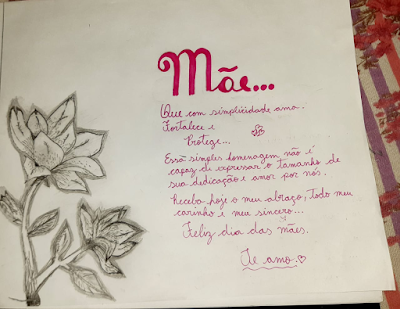 Mãe...
Que com simplicidade ama.
Fortalece e
Protege...
Essa simples homenagem não é
capaz de expressar o tamanho de
sua dedicação e amor por nós.
Receba hoje o meu abraço, todo meu
carinho e meu sincero...
Feliz dia das mães.
Te amo.